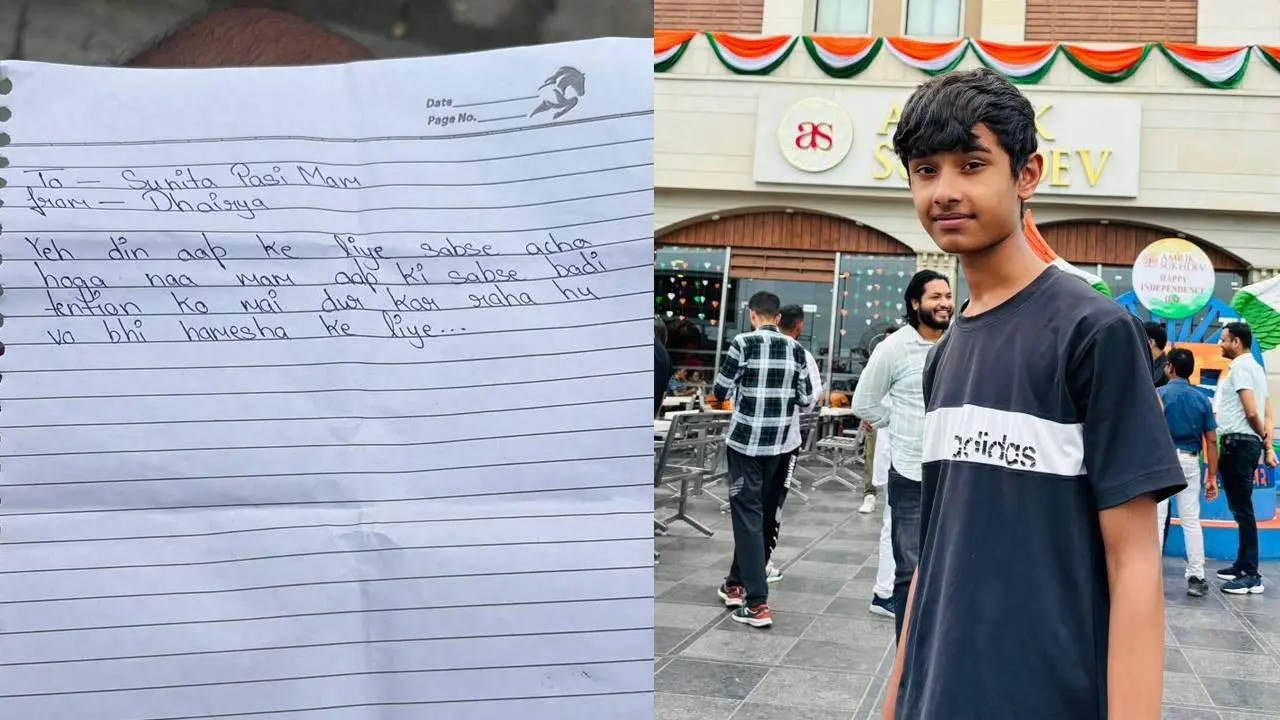 Date
Page No.
To - Sunita Pasi Mam
from - Dhairya
Yeh din aap ke liye sabse acha
hoga naa mam aap ki sabse badi
tention ko mai dur kar raha hu
vo bhi hamesha ke liye...
as
SUKHDEV
adidas
AMRIK
SUKHDEV
HAPPY
INDEPENDENCE